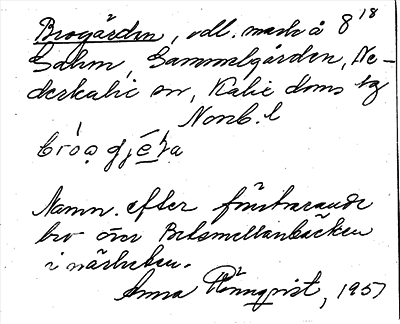 Brogården, odl. mark å 8 18
Sahm, Gammelgården, Ne-
derkalix sn, Kalix doms tg
Norrb. l
bróa gjéḷa
Namn. efter förutvarande
bro över
i närheten.
Anna Rönnqvist, 1957